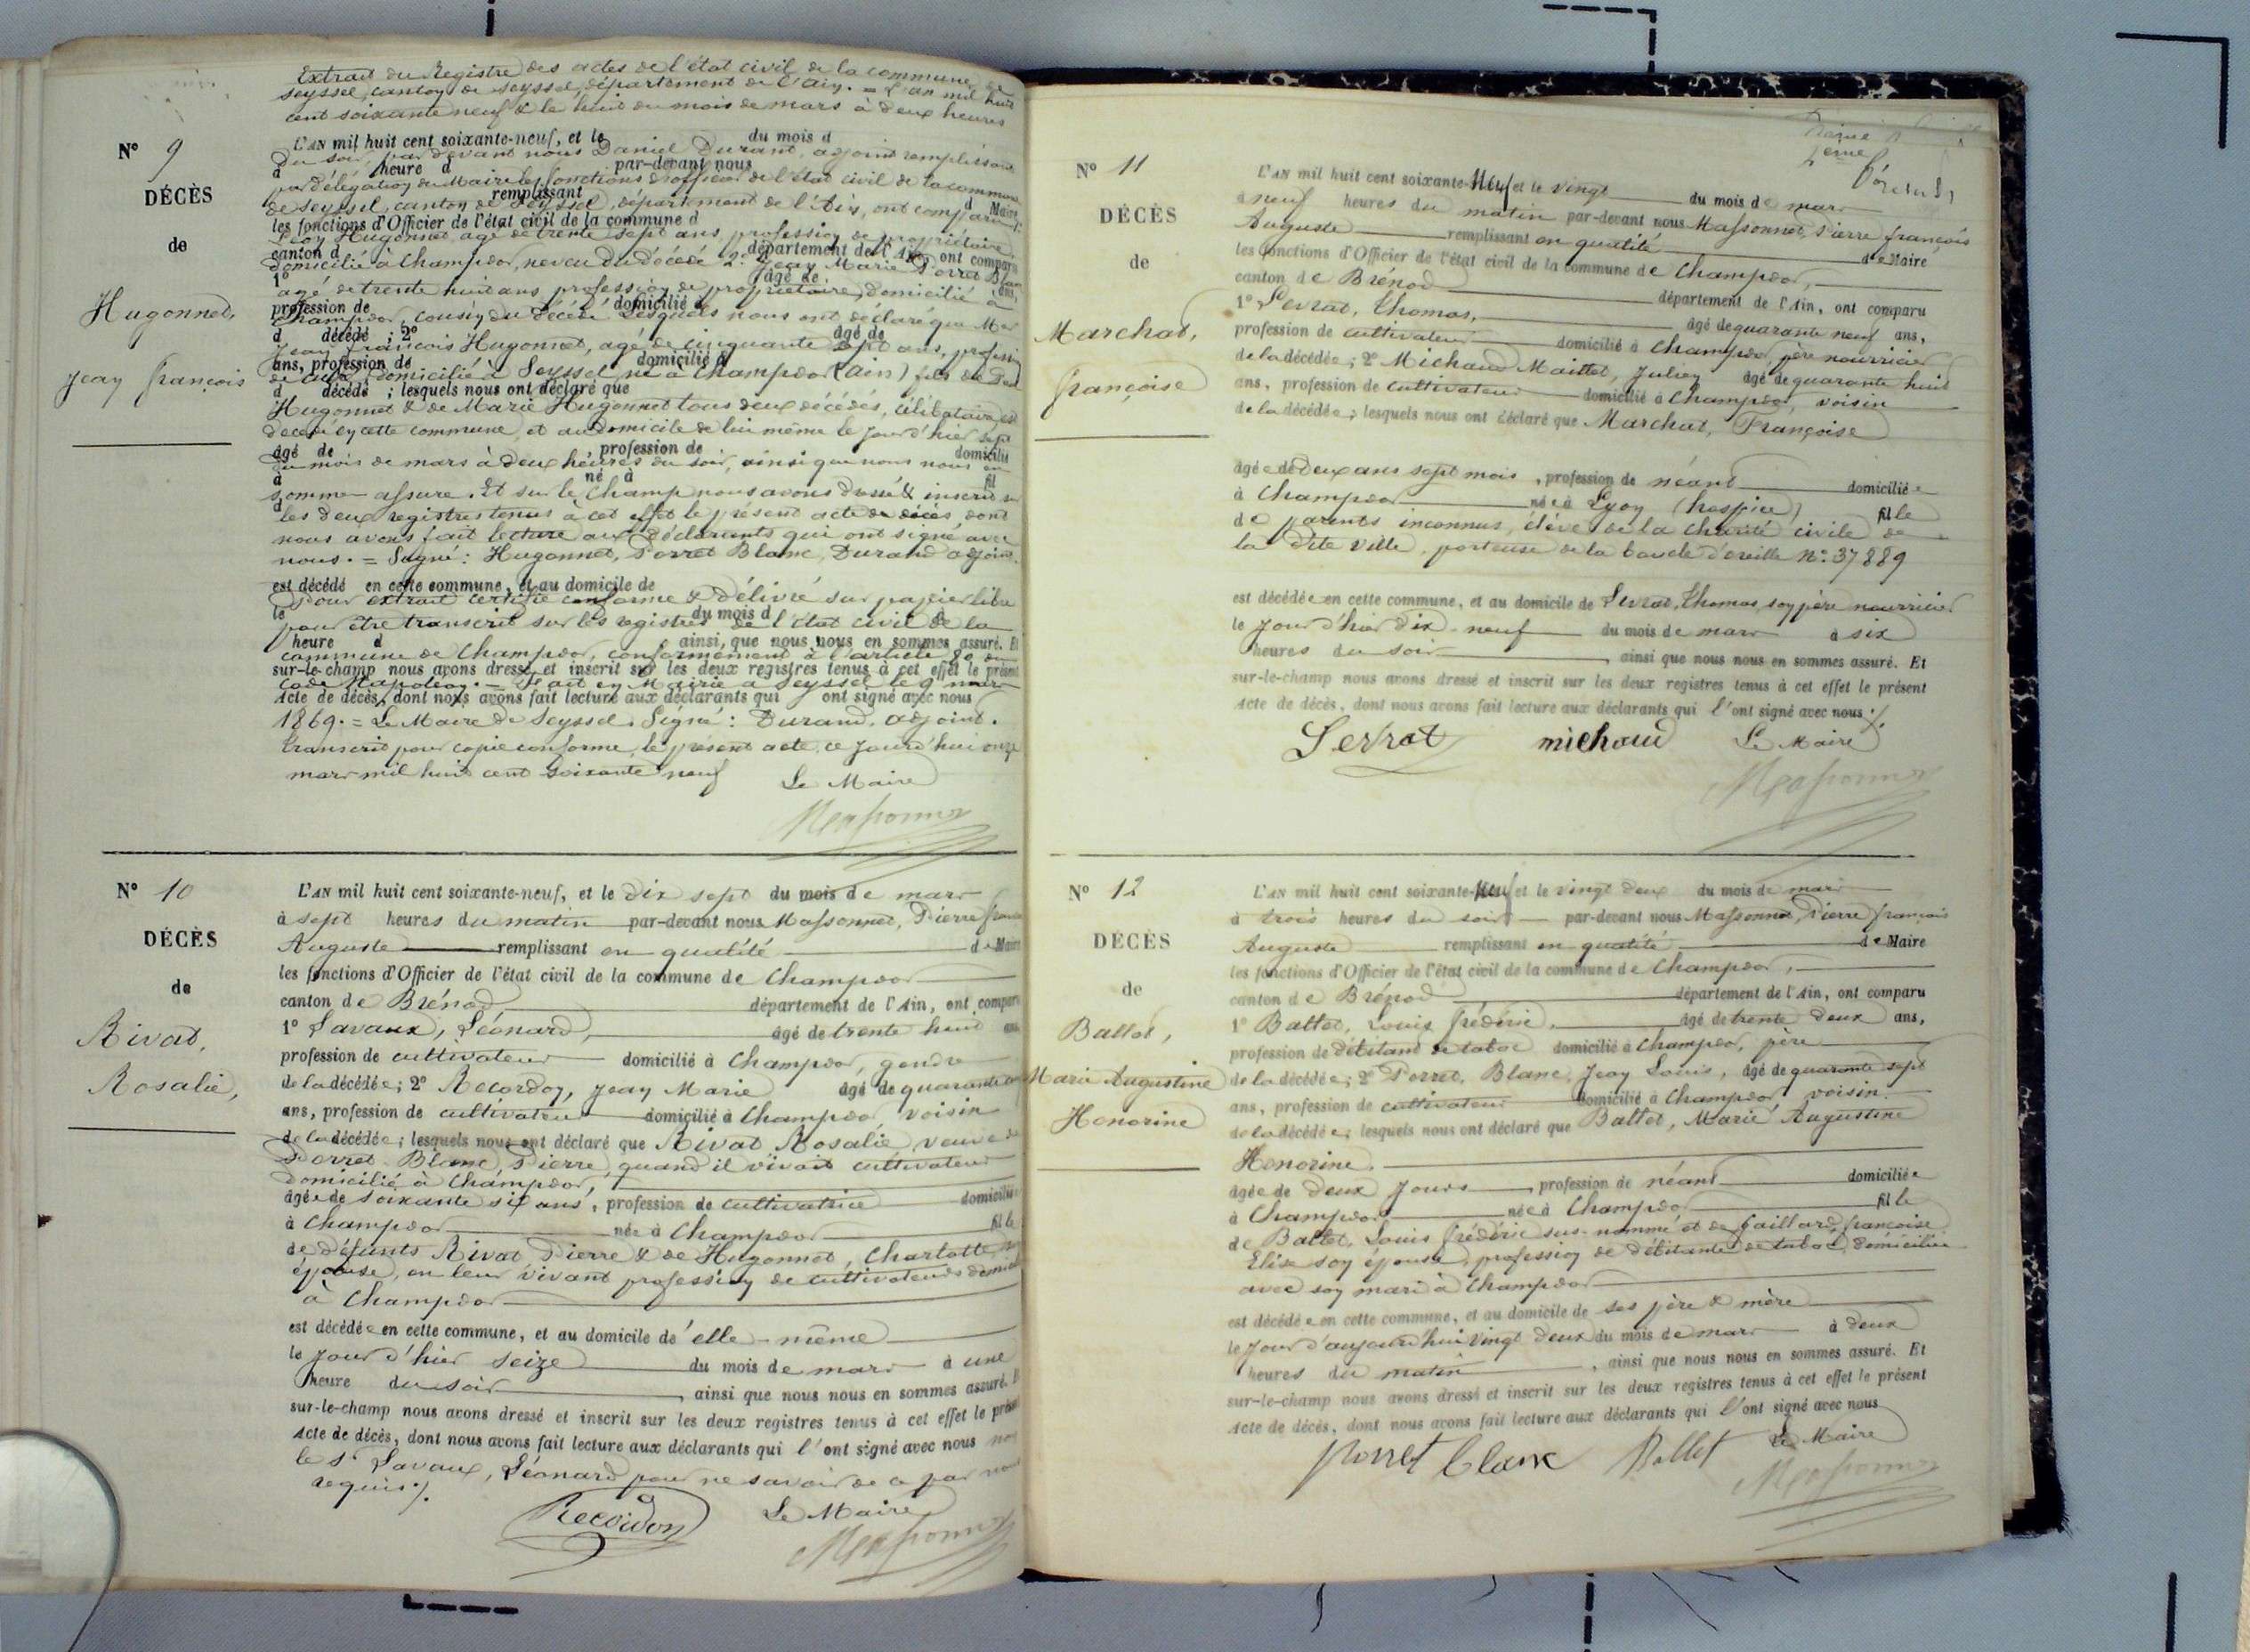 Extrait du Registre des actes de l'état civil de la commune de
Seyssel, canton de Seyssel, département de l'Ain. = L'an mil huit
cent soixante neuf & le huit du mois de mars à deux heures
L'AN mil huit cent soixante-neuf, et le du mois d
N° 9
du soir, par devant nous Daniel Durand, adjoint remplissant
à heure d par-devant nous
par délégation du Maire les fonctions d'officier de l'état civil de la commune
DÉCÈS
remplissant d Maire
de Seyssel, canton de Seyssel, département de l'Ain, ont comparu 1°
les fonctions d'Officier de l'état civil de la commune d
Léon Hugonnet, agé de trente sept ans, profession de propriétaire
de
canton d département de l'Ain, ont comparu
domicilié à Champdor, neveu du décédé 2° Jean Marie Porret Blanc
1° âgé de ans,
agé de trente huit ans profession de propriétaire, domicilié à
Hugonnet,
profession de domicilié à
Champdor, cousin du décédé. Lesquels nous ont déclaré que Mr
d décédé ; 2° âgé de
Jean François Hugonnet, agé de cinquante sept ans, profession
ans, profession de domicilié à
Jean françois
de domicilié à Seyssel, né à Champdor (Ain) fils de
d décédé ; lesquels nous ont déclaré que
Hugonnet & de Marie Hugonnet tous deux décédés, célibataire, est
décédé en cette commune, et au domicile de lui même le jour d'hier sept
âgé de , profession de domicilié
du mois de mars à deux heures du soir, ainsi que nous nous en
à né à fil
sommes assuré. Et sur le champ nous avons dressé & inscrit sur
d
les deux registres tenus à cet effet le présent acte de décès, dont
nous avons fait lecture aux déclarants qui ont signé avec
nous. = Signé : Hugonnet, Porret Blanc, Durand adjoint.
est décédé en cette commune, et au domicile de
Pour extrait certifié conforme & délivré sur papier libre
le du mois d à
pour être transcrit sur les registres de l'état civil de la
heure d ainsi, que nous nous en sommes assuré. Et
commune de Champdor, conformément à l'article 80 du
sur-le-champ nous avons dressé et inscrit sur les deux registres tenus à cet effet le présent
code Napoléon. = Fait en Mairie à Seyssel le 9 mars
Acte de décès, dont nous avons fait lecture aux déclarants qui ont signé avec nous
1869. = Le Maire de Seyssel. Signé : Durand, adjoint.
transcrit pour copie conforme, le présent acte, ce jourd'hui onze
mars mil huit cent soixante neuf
Le Maire
Massonnet
N° 10
DÉCÈS
de
Rivat,
Rosalie,
L'AN mil huit cent soixante-neuf, et le dix sept du mois de mars
à sept heures du matin par-devant nous Massonnet, Pierre françois
Auguste remplissant en qualité de Maire
les fonctions d'Officier de l'état civil de la commune de Champdor
canton de Brénod département de l'Ain, ont comparu
1° Savaux, Léonard, âgé de trente huit ans
profession de cultivateur domicilié à Champdor, gendre
de la décédée ; 2° Recordon, Jean Marie âgé de quarante
ans, profession de cultivateur domicilié à Champdor, voisin
de la décédée ; lesquels nous ont déclaré que Rivat Rosalie, veuve de
Porret Blanc, Pierre, quand il vivait cultivateur
domicilié à Champdor,
âgée de soixante six ans, profession de cultivatrice domiciliée
à Champdor née à Champdor fille
de défunts Rivat Pierre & de Hugonnet, Charlotte, son
épouse, en leur vivant profession de cultivateurs
à Champdor
est décédée en cette commune, et au domicile d'elle-même
le jour d'hier seize du mois de mars à une
heure du soir, ainsi que nous nous en sommes assuré. Et
sur-le-champ nous avons dressé et inscrit sur les deux registres tenus à cet effet le présent
Acte de décès, dont nous avons fait lecture aux déclarants qui l'ont signé avec nous non
le Sr Savaux, Léonard pour ne savoir de ce par nous
requis ./.
Recordon
Le Maire
Massonnet
N° 11
DÉCÈS
de
Marchat,
françoise
L'AN mil huit cent soixante-neuf et le vingt du mois de mars
à neuf heures du matin par-devant nous Massonnet, Pierre françois
Auguste remplissant en qualité de Maire
les fonctions d'Officier de l'état civil de la commune de Champdor,
canton de Brénod département de l'Ain, ont comparu
1° Serrat, Thomas, âgé de quarante neuf ans,
profession de cultivateur domicilié à Champdor, père nourricier
de la décédée ; 2° Michaud Maillet, Julien âgé de quarante huit
ans, profession de cultivateur domicilié à Champdor, voisin
de la décédée ; lesquels nous ont déclaré que Marchat, Françoise
âgée de deux ans sept mois, profession de néant domiciliée
à Champdor née à Lyon (hospice) fille
de parents inconnus, élève de la Charité civile de
la dite ville, porteuse de la boucle d'oreille N° 37889
est décédée en cette commune, et au domicile de Serrat, Thomas, son père nourricier
le jour d'hier dix-neuf du mois de mars à six
heures du soir, ainsi que nous nous en sommes assuré. Et
sur-le-champ nous avons dressé et inscrit sur les deux registres tenus à cet effet le présent
Acte de décès, dont nous avons fait lecture aux déclarants qui l'ont signé avec nous ./.
Serrat michaud Le Maire
Massonnet
N° 12
DÉCÈS
de
Ballet,
Marie Augustine
Honorine
L'AN mil huit cent soixante-neuf et le vingt deux du mois de mars
à trois heures du soir par-devant nous Massonnet, Pierre françois
Auguste remplissant en qualité de Maire
les fonctions d'Officier de l'état civil de la commune de Champdor,
canton de Brénod département de l'Ain, ont comparu
1° Ballet, Louis frédéric, âgé de trente deux ans,
profession de débitant de tabac domicilié à Champdor, père
de la décédée ; 2° Porret, Blanc, Jean Louis, âgé de quarante sept
ans, profession de cultivateur domicilié à Champdor, voisin
de la décédée ; lesquels nous ont déclaré que Ballet, Marie Augustine
Honorine.
âgée de deux jours, profession de néant domiciliée
à Champdor née à Champdor fille
de Ballet, Louis frédéric sus-nommé et de Gaillard, françoise
Elise son épouse, profession de débitante de tabac, domiciliée
avec son mari à Champdor
est décédée en cette commune, et au domicile de ses père & mère
le jour d'aujourd'hui vingt deux du mois de mars à deux
heures du matin, ainsi que nous nous en sommes assuré. Et
sur-le-champ nous avons dressé et inscrit sur les deux registres tenus à cet effet le présent
Acte de décès, dont nous avons fait lecture aux déclarants qui l'ont signé avec nous
Porret blanc Ballet Le Maire
Massonnet